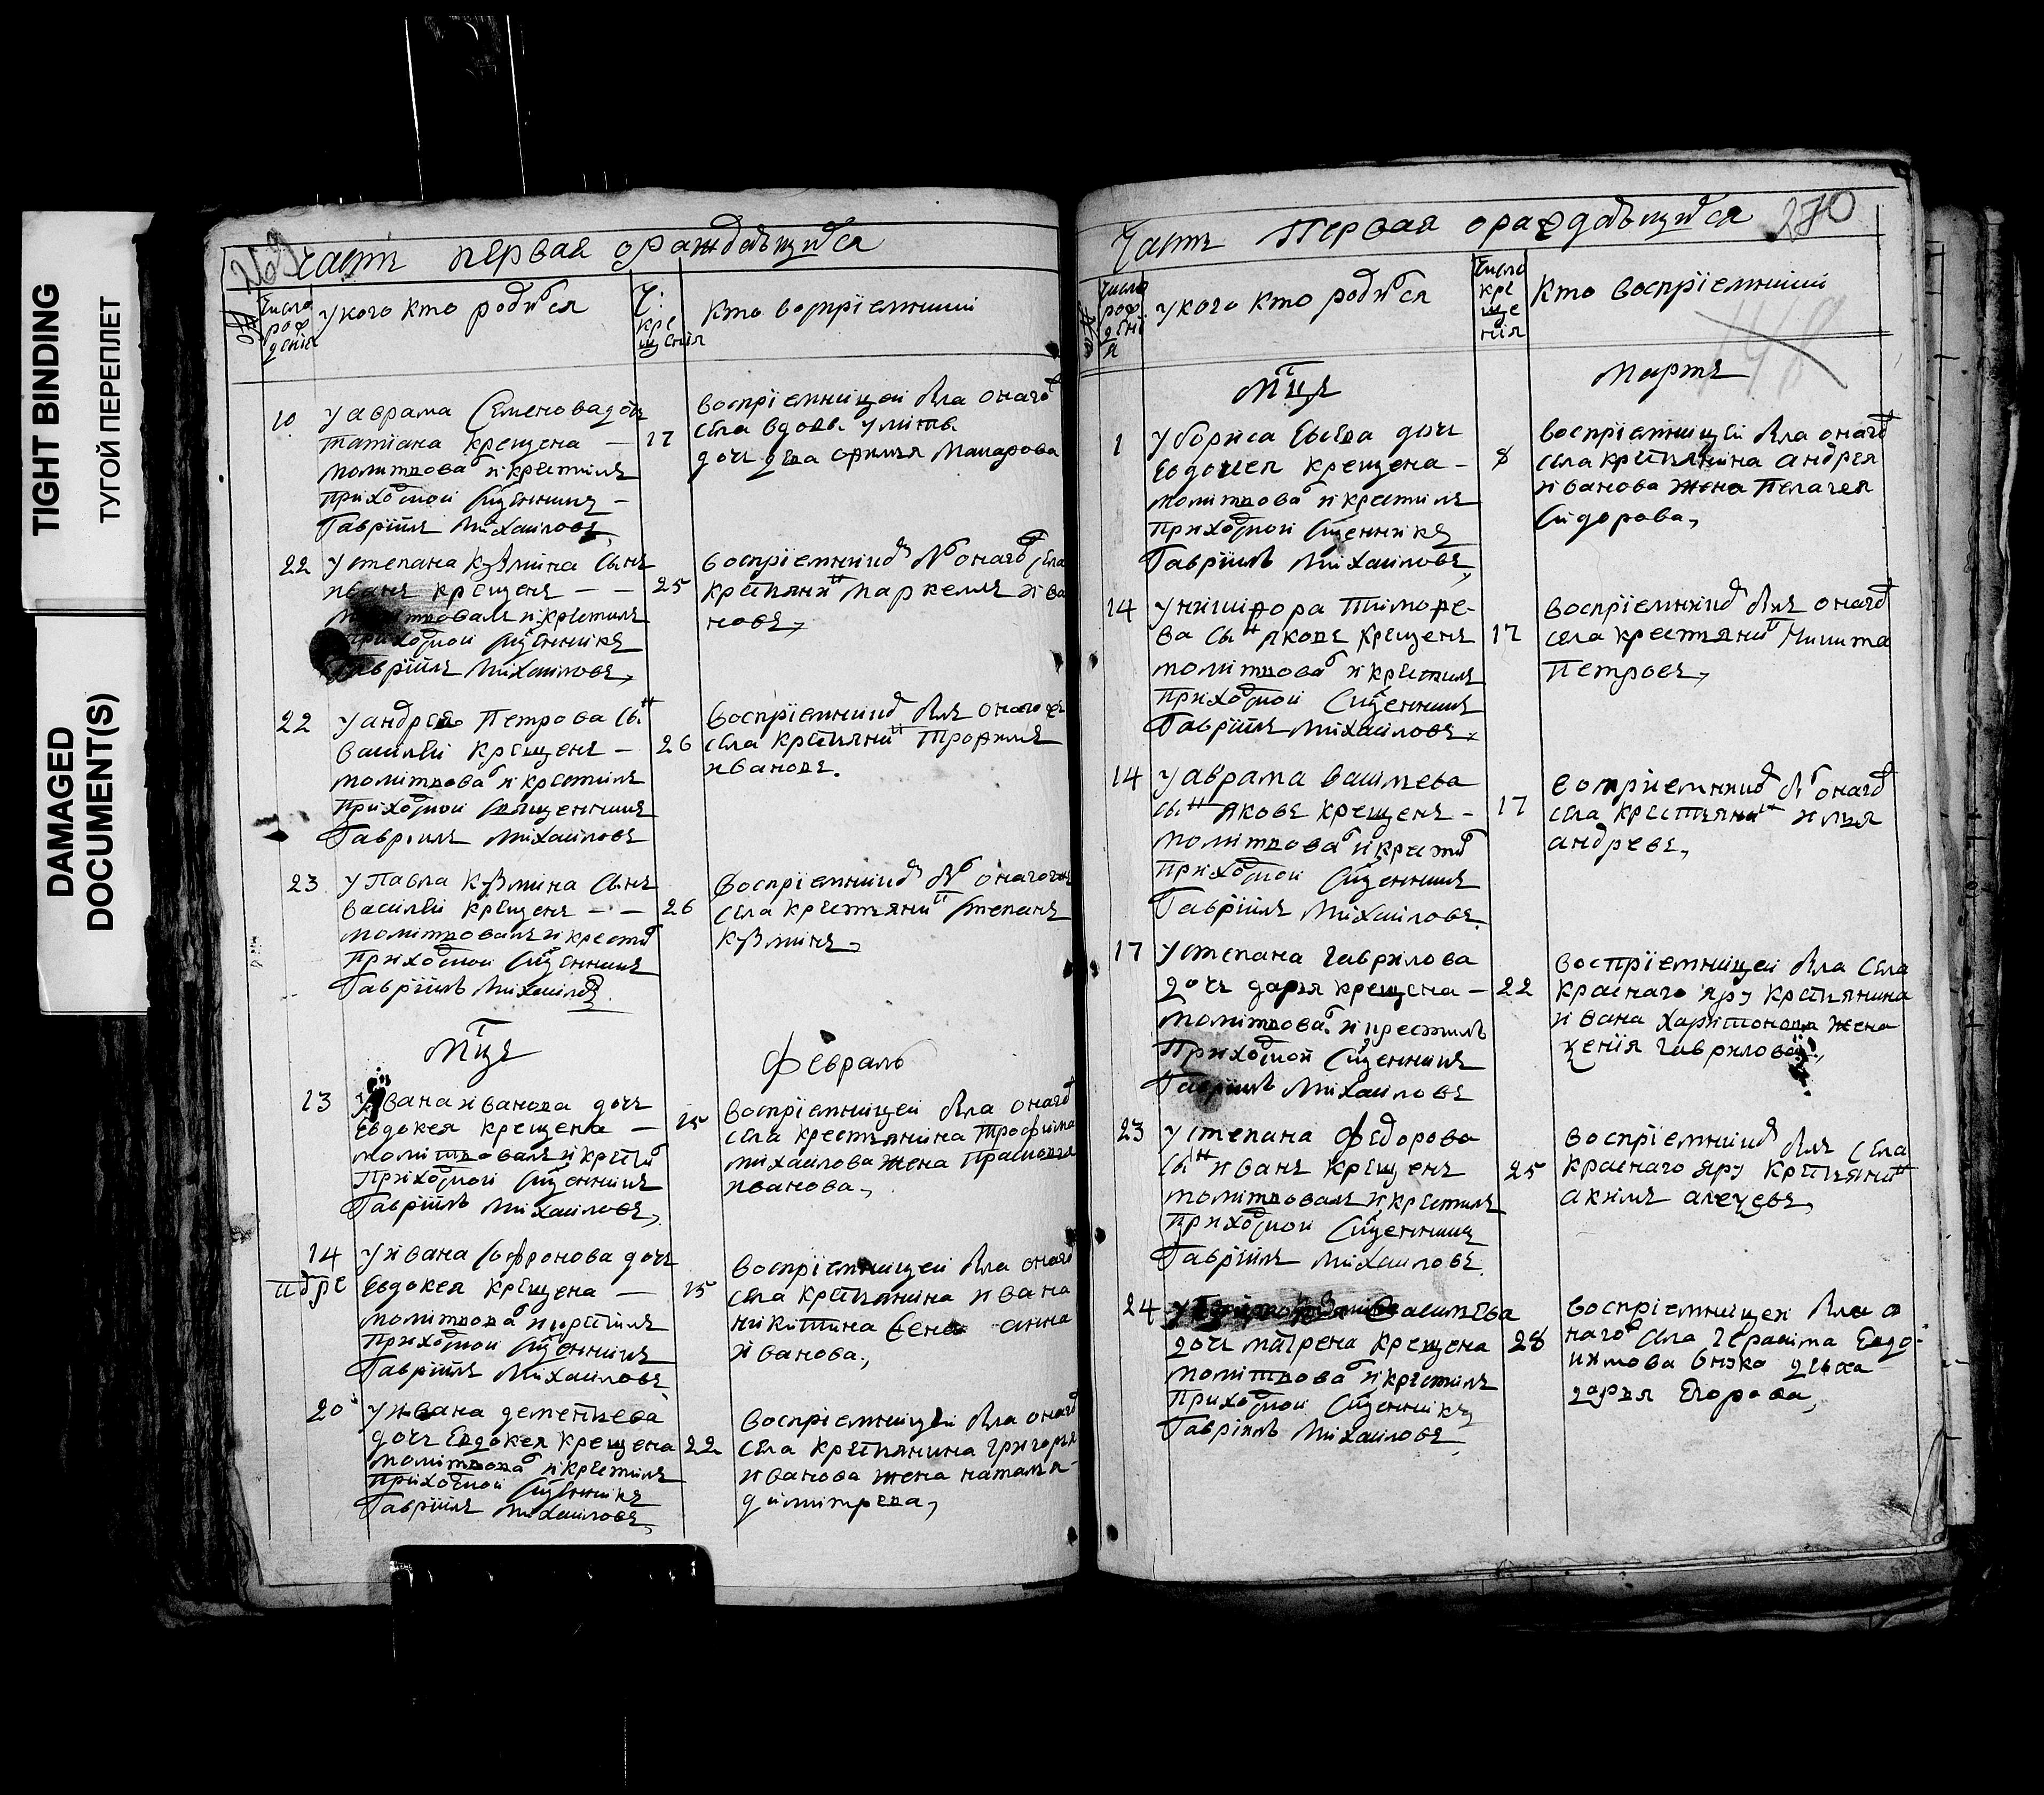 TIGHT BINDING
ТУГОЙ ПЕРЕПЛЕТ
DAMAGED
DOCUMENT(S)
269
часть первая ораждающихся
число рождения
у кого кто родился
Ч: крещения
Кто восприемники
10
у аврама Семенова дочь
татiана крещена —
молитвовал и крестилъ
приходной Священникъ —
Гаврiилъ Михаиловъ
17
восприемницей была онаго
села вдовы улиты
дочь дева Офимья Макарова
22
у степана Кузмина Сынъ
иванъ крещенъ — —
молитвовалъ и крестилъ
приходной Священникъ
Гаврiилъ Михаиловъ,
25
восприемникъ был онаго села
крестьянинъ Маркелъ ива
новъ,
22
у андрея Петрова Сынъ
василей крещенъ —
молитвовал и крестилъ
приходной Священникъ
Гаврилъ Михаиловъ
26
восприемникъ былъ онаго же
села крестьянинъ Трофимъ
ивановъ.
23
у Павла Кузмина Сынъ
василей крещенъ — —
молитвовалъ и крестил
приходной Священникъ
Гаврiилъ Михаилов
26
восприемникъ был онаго же
села крестьянинъ Степанъ
Кузминъ,
Мцъ
февраль
13
у ивана иванова дочь
евдокея крещена —
молитвовалъ и крестил
приходной Священникъ
Гаврiилъ Михаиловъ,
15
восприемницей была онаго
села крестьянина Трофима
михаилова жена Прасковья
иванова,
14
у ивана Софронова дочь
Евдокея крещена —
молитвовал и крестилъ
приходной Священникъ
Гаврiилъ Михаиловъ
15
восприемницей была онаго
села крестьянина ивана
никитина жена анна
иванова,
20
у ивана дементьева
дочь Евдокея крещена
молитвовал и крестилъ
приходной Священникъ
Гаврiилъ Михаиловъ,
22
восприемницей была онаго
села крестьянина григорья
иванова жена наталья
димитрева,
Часть Первая ораждающихся
270
число рождения
у кого кто родился
число крещения
Кто восприемники
148
Мцъ
Мартъ
1
у бориса Евсева дочь
евдокея крещена —
молитвовал и крестилъ
приходной Священникъ
Гаврiилъ Михаиловъ,
8
восприемницей была онаго
села крестьянина андрея
иванова жена Пелагея
Сидорова,
14
у никифора Тимофе-
ва Сынъ яковъ крещенъ
молитвовал и крестилъ
приходной Священникъ
Гаврiилъ Михаиловъ,
17
восприемникъ былъ онаго
села крестьянинъ Никита
Петровъ,
14
у аврама васильева
сынъ яковъ крещенъ —
молитвовал и крестил
приходной Священникъ
Гаврiилъ Михаиловъ
17
восприемникъ был онаго
села крестьянинъ илья
андревъ,
17
у степана гаврилова
дочь дарья крещена —
молитвовал и крестилъ
Приходной Священникъ
Гаврiилъ Михаиловъ
22
восприемницей была села
краснаго яру крестьянина
ивана харитонова жена
ксенiя гаврилова,
23
у степана федорова
сынъ иванъ крещенъ
молитвовалъ и крестилъ
приходной Священникъ
Гаврiилъ Михаиловъ
25
восприемникъ былъ села
краснаго яру крестьянинъ
акимъ алексевъ,
24
васильева
дочь матрена крещена
молитвовал и крестилъ
приходной Священникъ
Гаврiилъ Михаиловъ,
28
восприемницей была о
наго села герасима Евдо-
кимова внука девка
дарья Егорова,